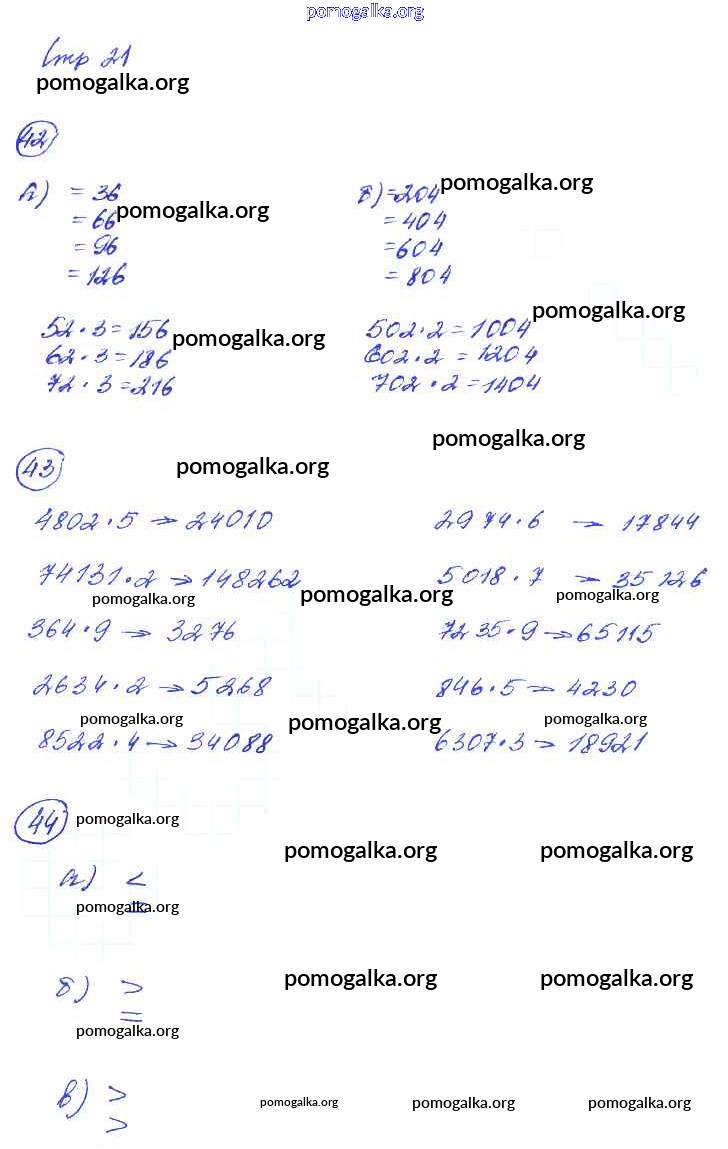 pomogalka.org
Стр 21
pomogalka.org
42
а) = 36 б) = 204 pomogalka.org
= 66 pomogalka.org = 404
= 96 = 604
= 126 = 804
52 · 3 = 156 502 · 2 = 1004 pomogalka.org
62 · 3 = 186 pomogalka.org 602 · 2 = 1204
72 · 3 = 216 702 · 2 = 1404
pomogalka.org
43 pomogalka.org
4802 · 5 → 24010 2974 · 6 → 17844
74131 · 2 → 148262 5018 · 7 → 35126
pomogalka.org pomogalka.org pomogalka.org
364 · 9 → 3276 7235 · 9 → 65115
2634 · 2 → 5268 846 · 5 → 4230
pomogalka.org pomogalka.org pomogalka.org
8522 · 4 → 34088 6307 · 3 → 18921
44 pomogalka.org
pomogalka.org pomogalka.org
а) <
= pomogalka.org
б) > pomogalka.org pomogalka.org
=
pomogalka.org
в) > pomogalka.org pomogalka.org pomogalka.org
>